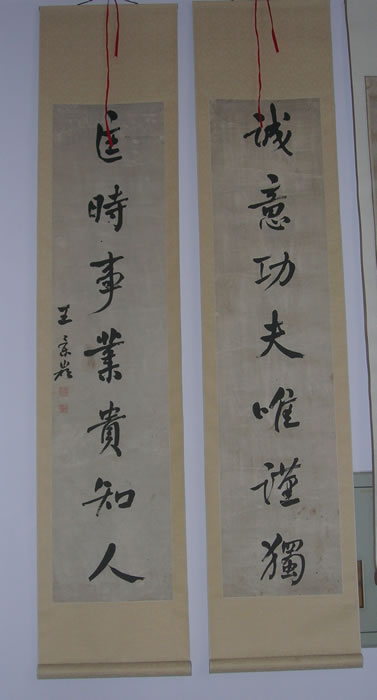 誠意功夫唯謹獨
匡時事業貴知人
王